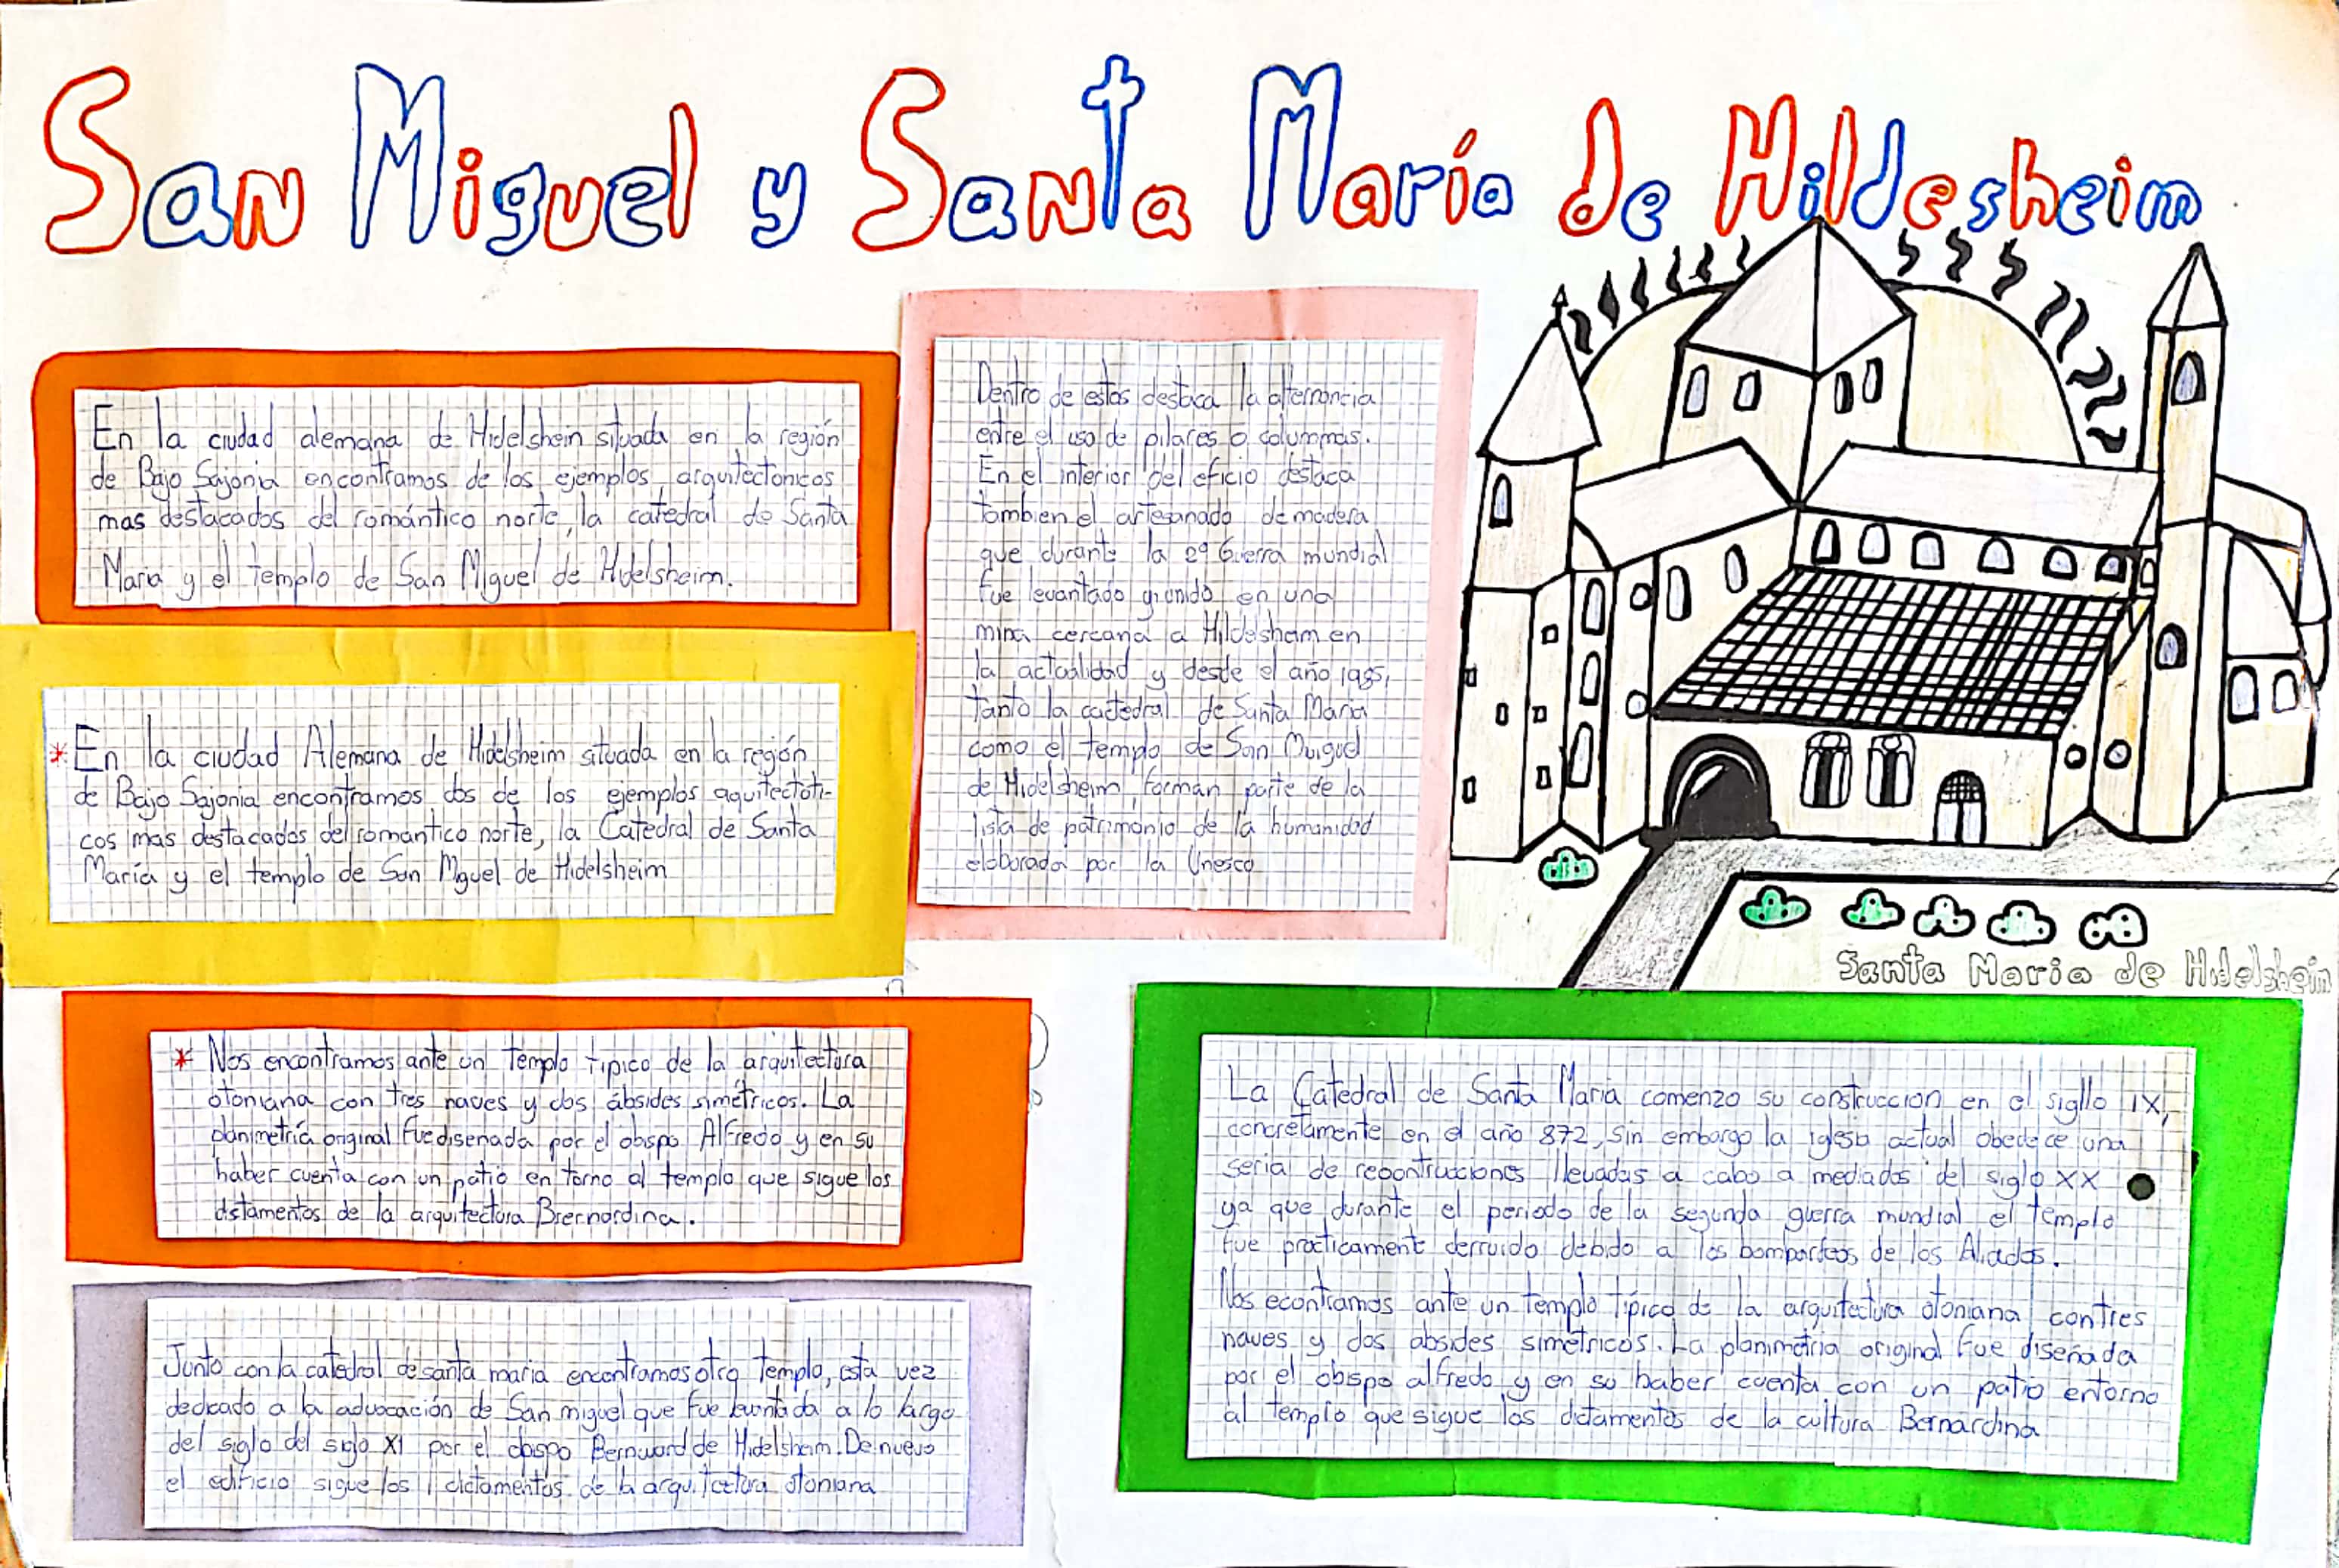 San Miguel y Santa María de Hildesheim
En la ciudad alemana de Hidelshein situada en la región
de Bajo Sajonia encontramos de los ejemplos arquitectonicos
mas destacados del romántico norte, la catedral de Santa
Maria y el templo de San Miguel de Hidelsheim.
* En la ciudad Alemana de Hidelsheim situada en la región
de Bajo Sajonial encontramos dos de los ejemplos aquitectoti-
cos mas destacados del romantico norte, la Catedral de Santa
María y el templo de San Mguel de Hidelsheim
* Nos encontramos ante un templo tipico de la arquitectura
otoniana con tres naves y dos ábsides simétricos. La
planimetría original fue disenada por el obspo Alfredo y en su
haber cuenta con un patio en torno al templo que sigue los
distamentos de la arquitectura Brernordina.
Junto con la catedral de santa maria encontramos otro templo, esta vez
dedicado a la advocación de San miguel que fue levantada a lo largo
del siglo del siglo XI por el obspo Bernward de Hidelsheim. De nuevo
el edificio sigue los dictamentos de la arquitectura otoniana
Dentro de estos destaca la alternancia
entre el uso de pilares o colummas.
En el interior del eficio destaca
tambien el artesanado de madera
que durante la 2º Guerra mundial
fue levantado y unido en una
mina cercana a Hildesheim en
la actualidad y desde el año 1985,
tanto la catedral de Santa Maria
como el templo de San Muiguel
de Hidelsheim, forman parte de la
lista de patrimonio de la humanidad
elaborada por la Unesco
Santa Maria de Hidelshein
La Catedral de Santa Maria comenzo su construccion en el sigllo IX,
concretamente en el año 872, sin embargo la iglesia actual obedece una
seria de recontrucciones llevadas a cabo a mediados del siglo XX
ya que durante el periodo de la segunda guerra mundial el templo
fue practicamente derruido debido a los bombardeos de los Aliados.
Nos econtramos ante un templo típico de la arquitectura otoniana con tres
naves y dos absides simétricos. La planimetria original fue diseñada
por el obispo alfredo y en su haber cuenta con un patio entorno
al templo que sigue los dictamentos de la cultura Bernardina